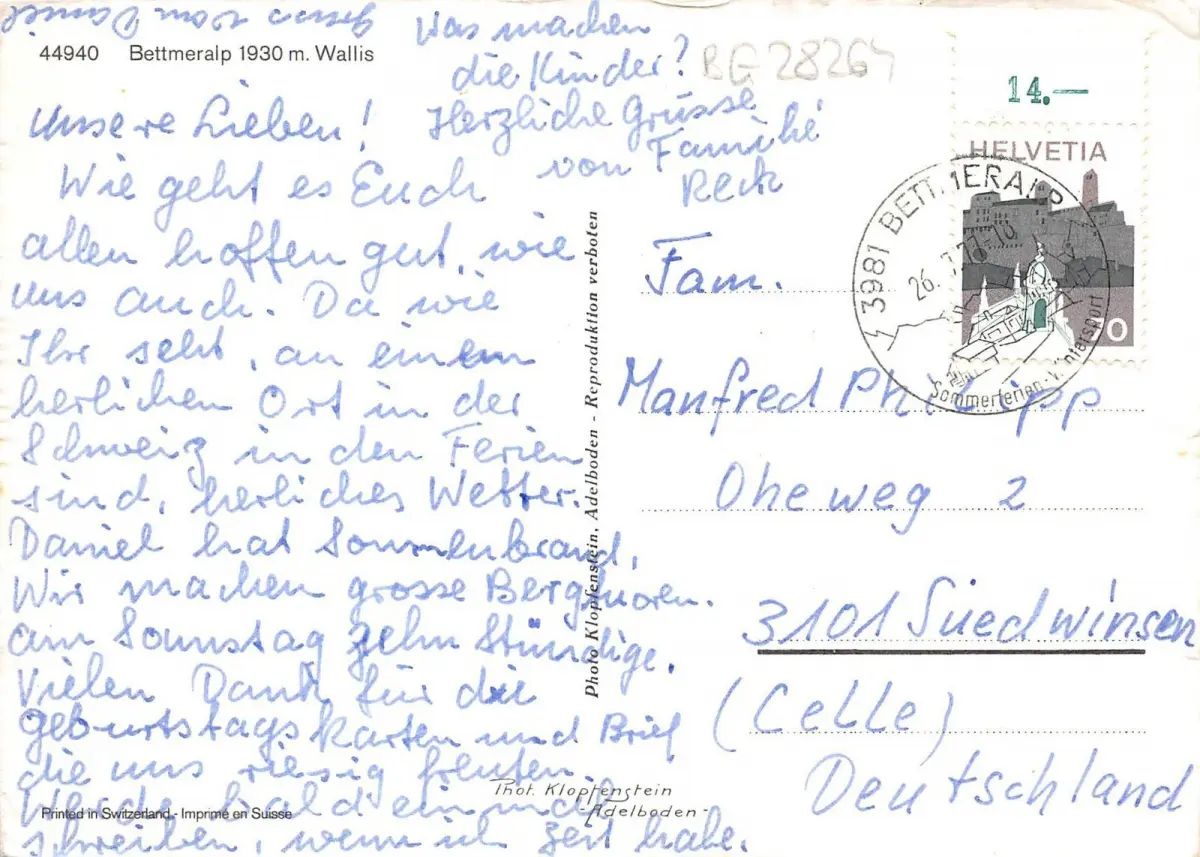 44940 Bettmeralp 1930 m. Wallis
Unsere Lieben!
Wie geht es Euch
allen hoffen gut, wie
uns auch. Da wie
Ihr seht, an einem
herlichen Ort in der
Schweiz in den Ferien
sind, herliches Wetter.
Daniel hat Sonnenbrand.
Wir machen grosse Bergtuoren.
am Sonnstag zehn Stündige.
Vielen Dank für die
geburtstagskarten und Brief
die uns riesig freuten
Werde bald ein mal
schreiben, wenn ich Zeit habe.
Was machen
die Kinder?
Herzliche Grüsse
von Familie
Reck
gruss vom Daniel
BG 28264
14.—
HELVETIA
3981 BETTMERALP
26. 7.77-10
Sommerferien-Wintersport
Fam.
Manfred Philipp
Oheweg 2
3101 Suedwinsen
(Celle)
Deutschland
Photo Klopfenstein, Adelboden - Reproduktion verboten
Phot. Klopfenstein
Adelboden
Printed in Switzerland - Imprimé en Suisse